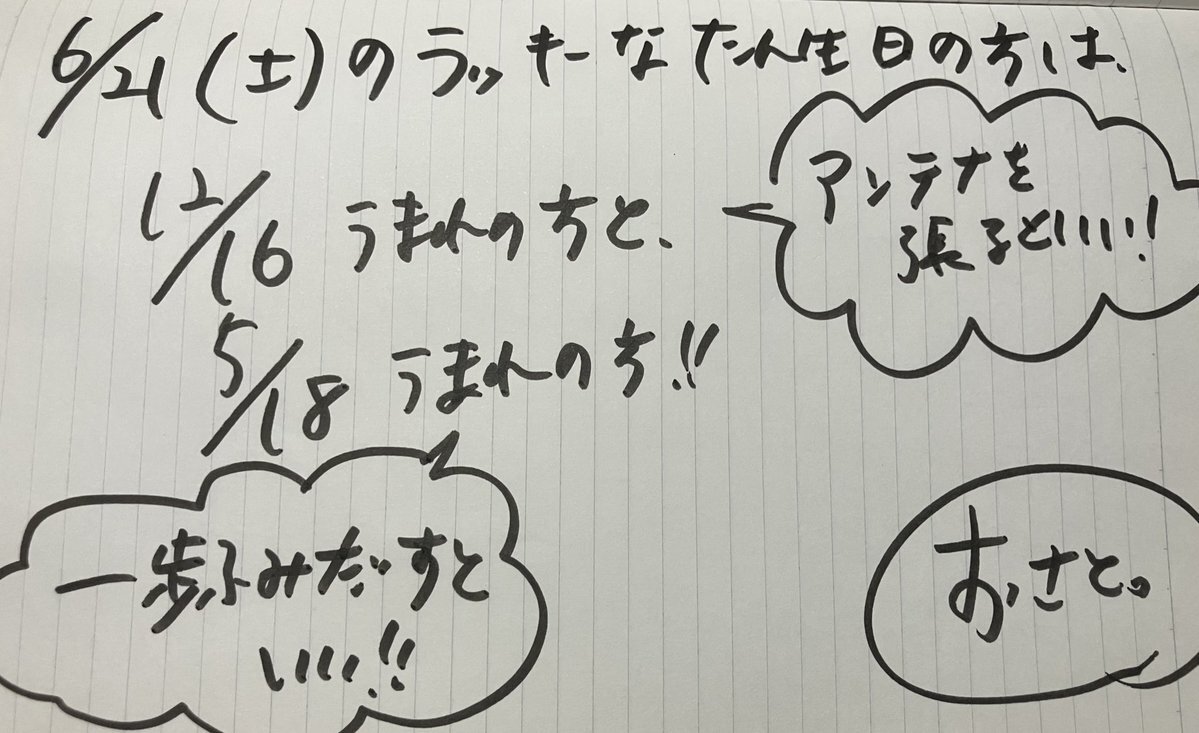 6/21(土)のラッキーなたん生日の方は、
12/16 うまれの方と、
アンテナを
張るといい!
5/18 うまれの方!!
一歩ふみだすと
いい!!
おさと。